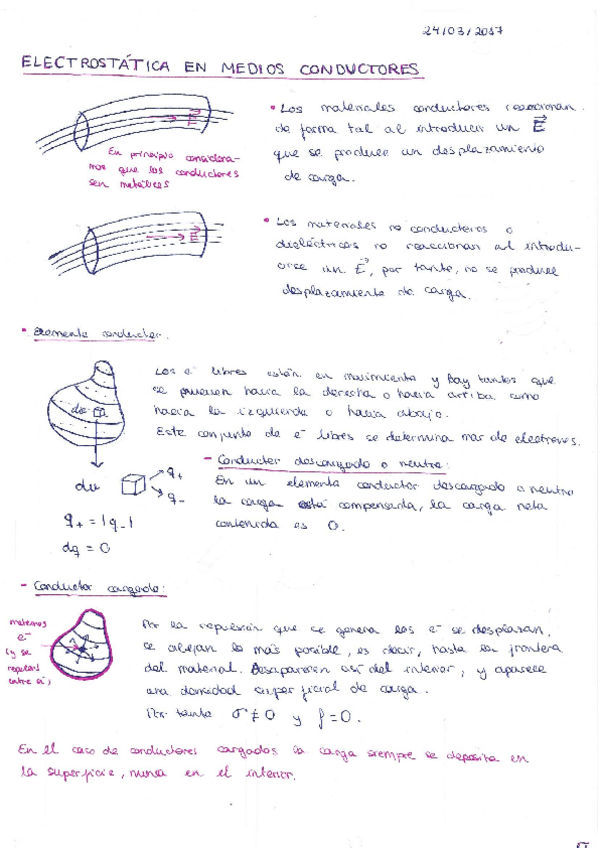 24/03/2017
ELECTROSTÁTICA EN MEDIOS CONDUCTORES
E
En principio considera-
mos que los conductores
son metálicos
• Los materiales conductores reaccionan
de forma tal al introducir un E
que se produce un desplazamiento
de carga.
E
• Los materiales no conductores o
dieléctricos no reaccionan al introdu-
cirse un E, por tanto, no se produce
desplazamiento de carga.
• Elemento conductor.
dv
dv
q+
q-
q+ = |q-|
dq = 0
Los e- libres están en movimiento y hay tantos que
se mueven hacia la derecha o hacia arriba como
hacia la izquierda o hacia abajo.
Este conjunto de e- libres se determina mar de electrones.
- Conductor descargado o neutro:
En un elemento conductor descargado o neutro
la carga está compensada, la carga neta
contenida es 0.
- Conductor cargado:
metemos
e-
(y se
repelen
entre sí)
Por la repulsión que se genera los e- se desplazan,
se alejan lo más posible, es decir, hasta la frontera
del material. Desaparecen así del interior, y aparece
una densidad superficial de carga.
Por tanto σ ≠ 0 y ρ = 0.
En el caso de conductores cargados la carga siempre se deposita en
la superficie, nunca en el interior.